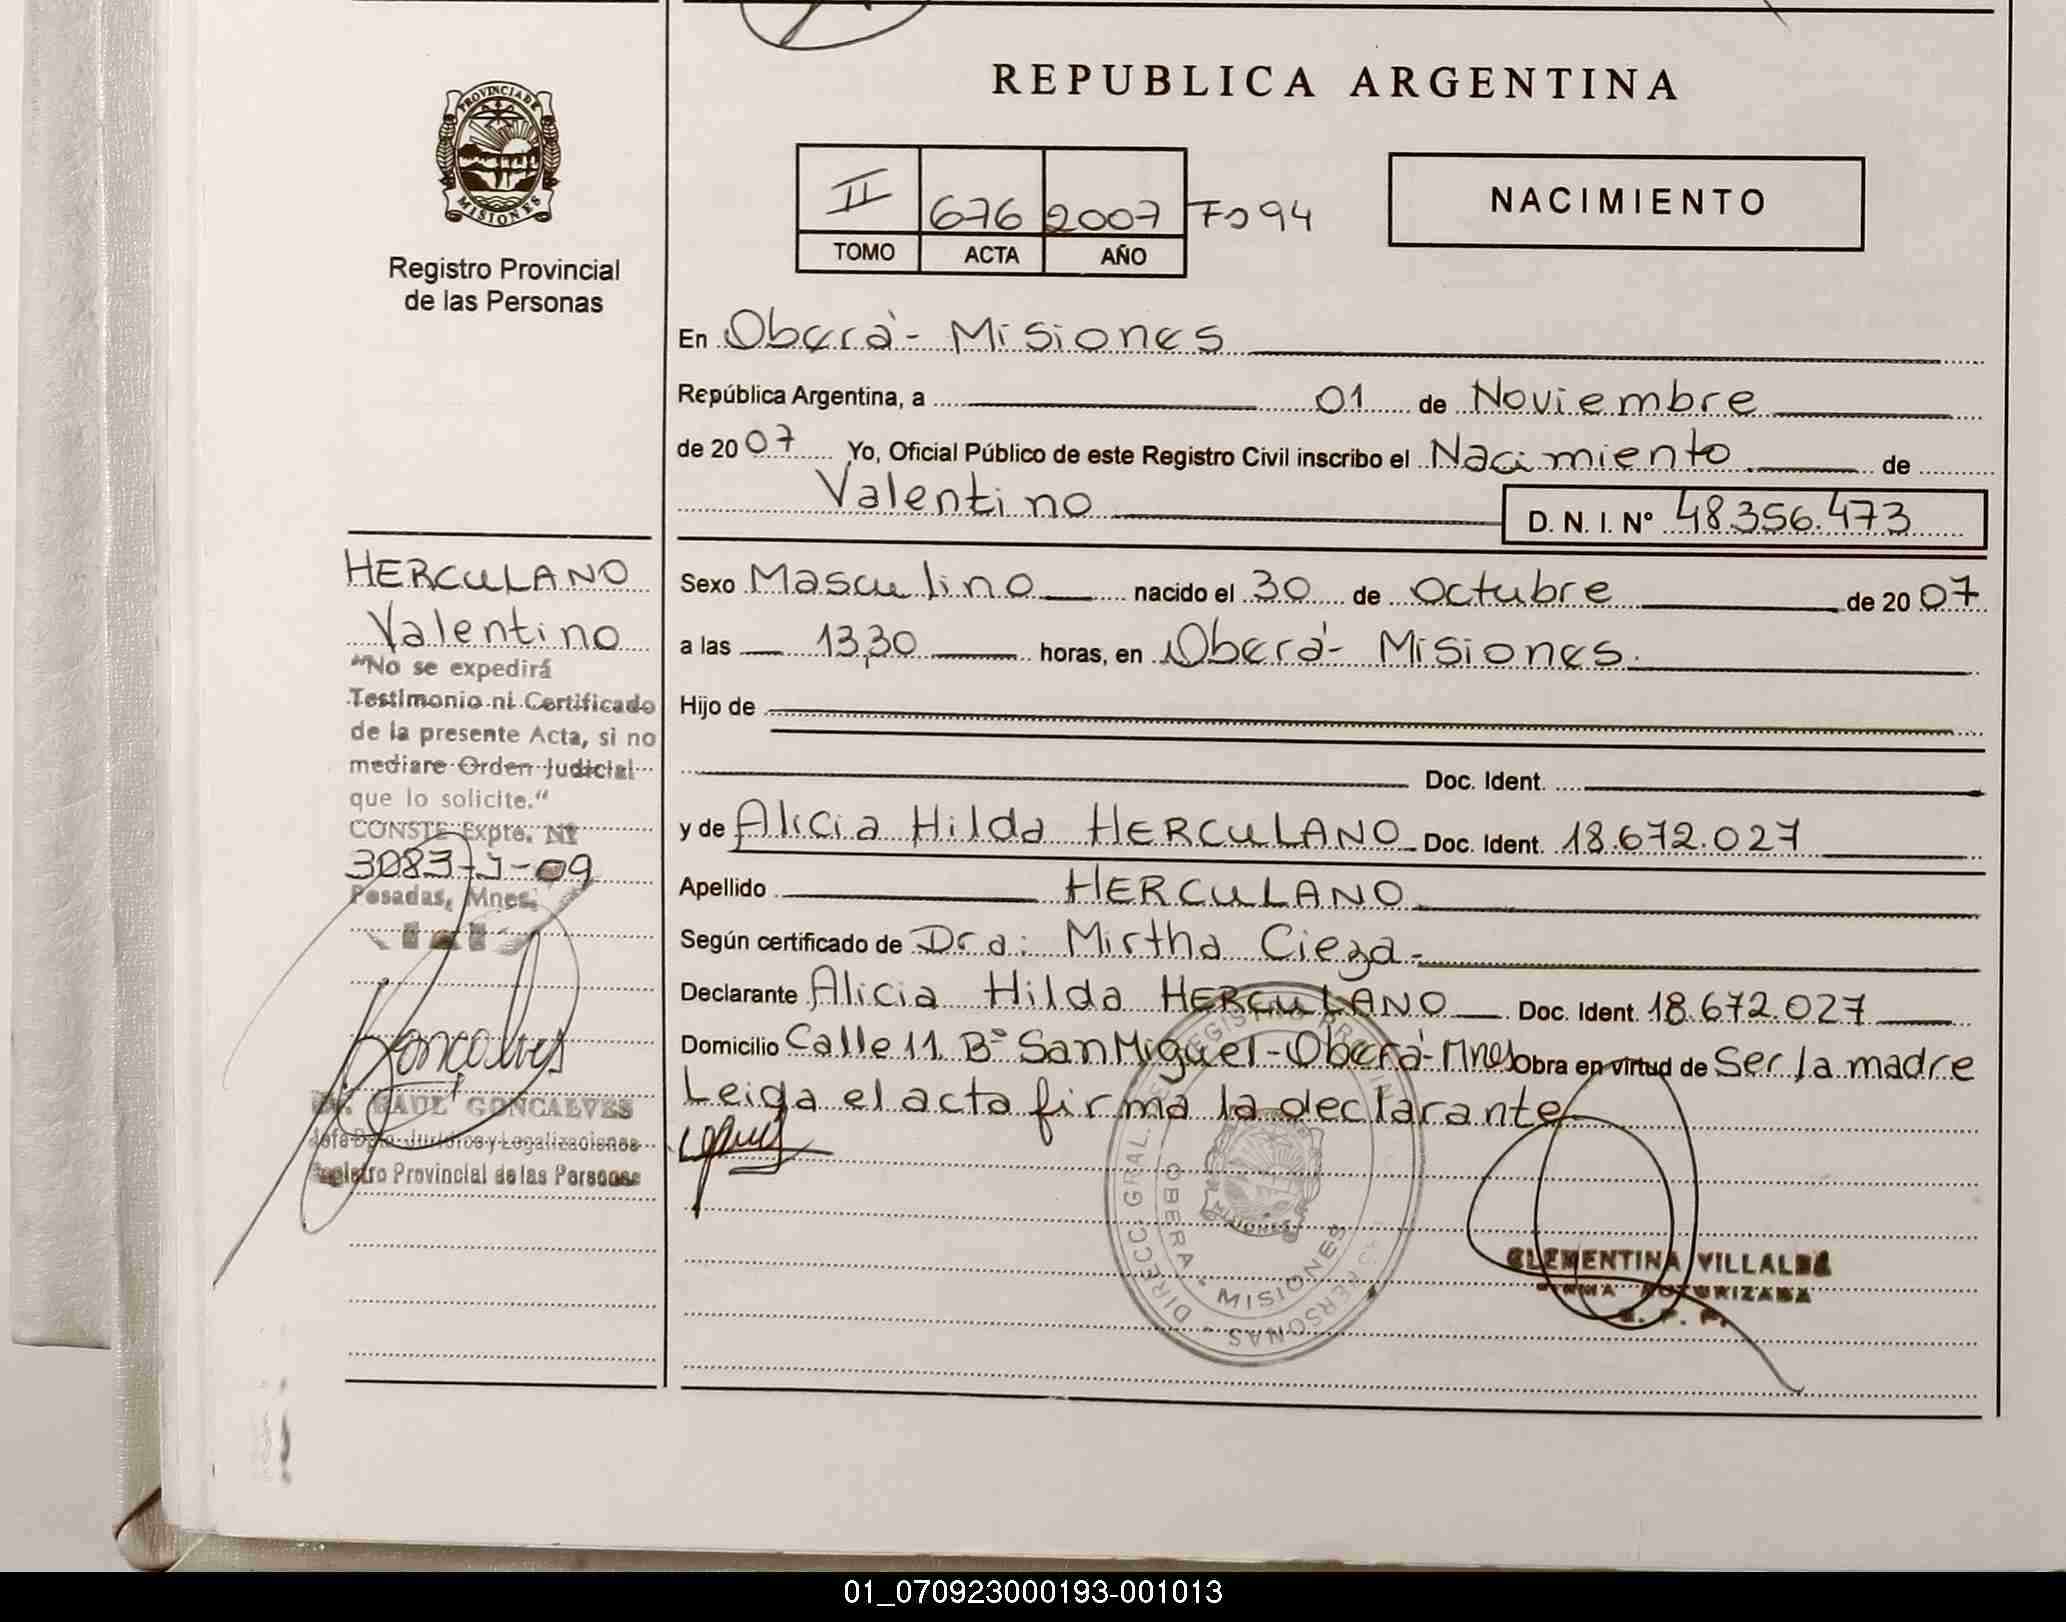 REPUBLICA ARGENTINA
PROVINCIA DE
MISIONES
Registro Provincial
de las Personas
II 676 2007 Fo 94
TOMO ACTA AÑO
NACIMIENTO
En Oberá - Misiones
República Argentina, a 01 de Noviembre
de 2007 Yo, Oficial Público de este Registro Civil inscribo el Nacimiento de
Valentino D. N. I. N° 48.356.473
HERCULANO
Valentino
"No se expedirá
Testimonio ni Certificado
de la presente Acta, si no
mediare Orden Judicial
que lo solicite."
CONSTE Expte. Nº
3083-J-09
Posadas, Mnes.
Sexo Masculino nacido el 30 de Octubre de 2007
a las 13,30 horas, en Oberá - Misiones.
Hijo de
Doc. Ident.
y de Alicia Hilda HERCULANO Doc. Ident. 18.672.027
Apellido HERCULANO
Según certificado de Dra: Mirtha Cieza-
Declarante Alicia Hilda HERCULANO Doc. Ident. 18.672.027
Domicilio Calle 11 Bº San Miguel - Oberá - Mnes Obra en virtud de Ser la madre
Leiga el acta firma la declarante
Gonçalves
Dr. RAUL GONCALVES
Jefe Dpto. Jurídico y Legalizaciones
Registro Provincial de las Personas
DIRECC. GRAL. DEL REGISTRO PROVINCIAL DE LAS PERSONAS
OBERA * MISIONES
MISIONES
CLEMENTINA VILLALBA
FIRMA AUTORIZADA
01_070923000193-001013